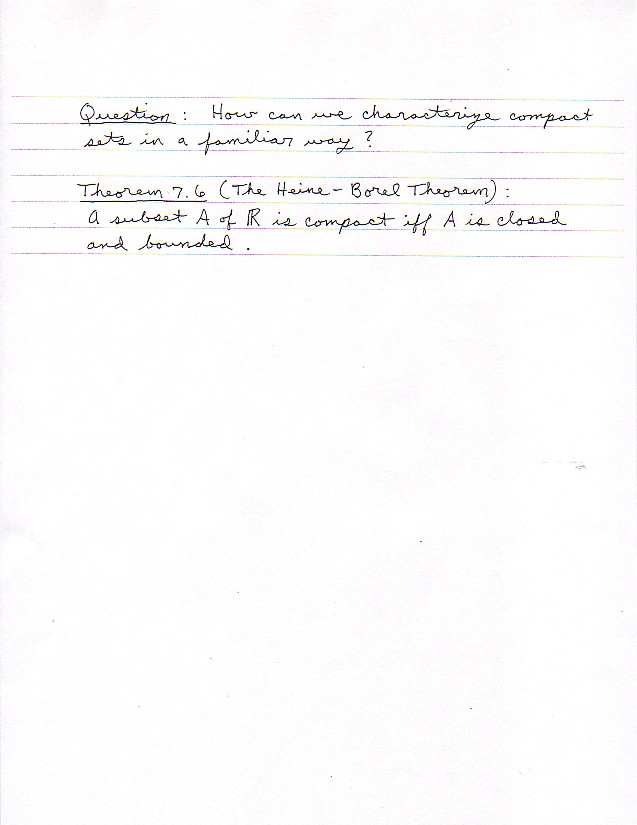 Question: How can we characterize compact
sets in a familiar way?
Theorem 7.6 (The Heine-Borel Theorem):
A subset A of ℝ is compact iff A is closed
and bounded.